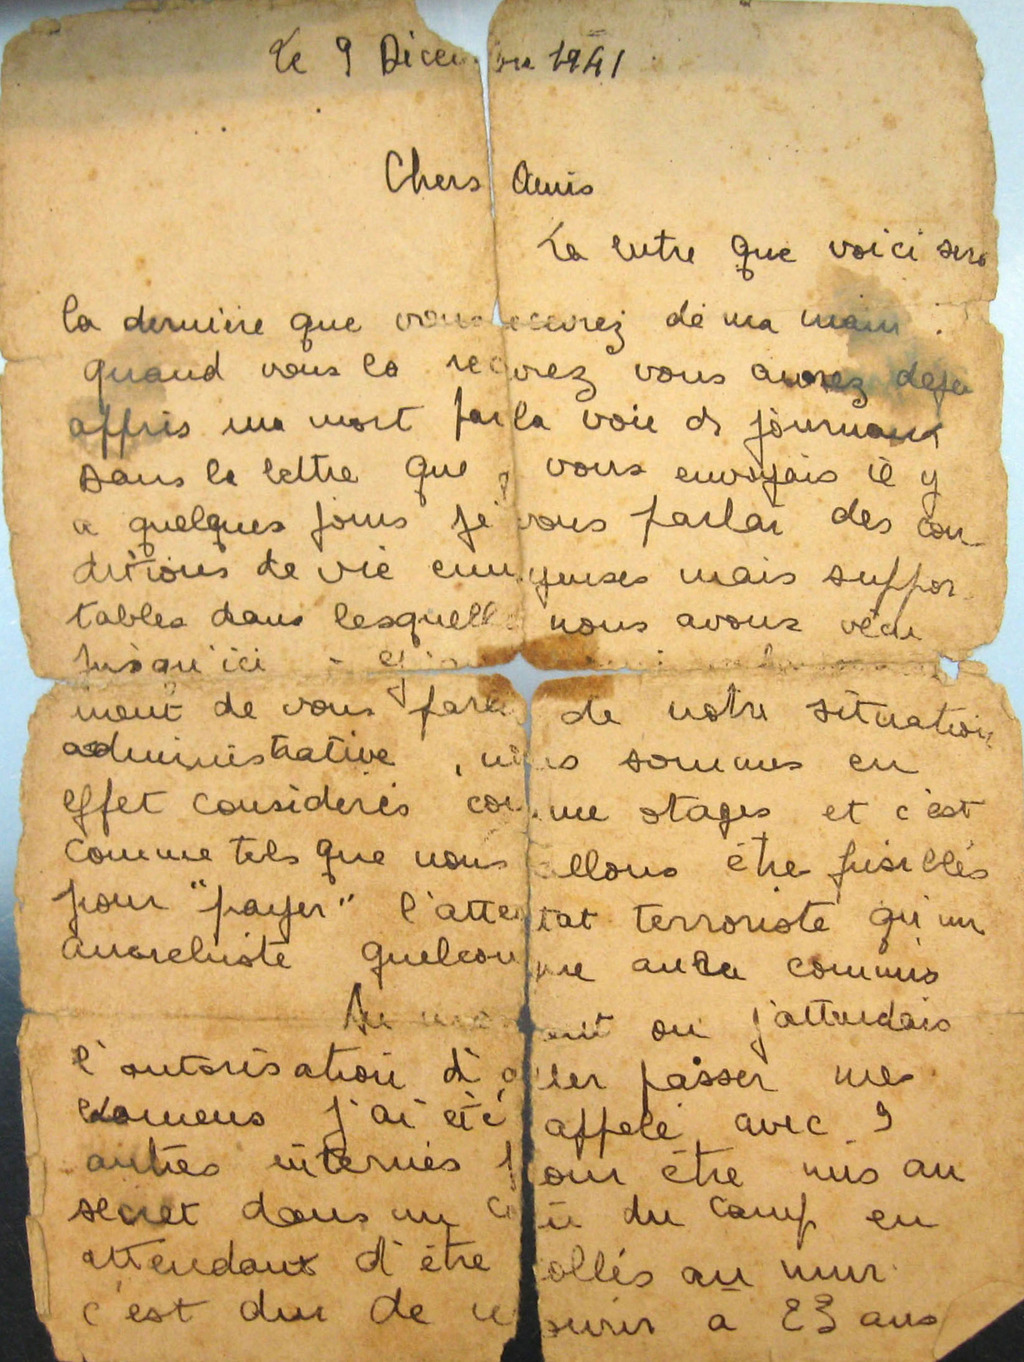 Le 9 Dicembre 1941
Chers Amis
La lettre que voici sera
la dernière que vous recevrez de ma main.
quand vous la recevrez vous aurez déjà
appris ma mort par la voie ds journaux
Dans la lettre que je vous envoyais il y
a quelques jours je vous parlai des con-
ditions de vie ennuyeuses mais suppor-
tables dans lesquelles nous avons vécu
jusqu'ici -
ment de vous parler de notre situation
administrative, nous sommes en
effet considérés comme otages et c'est
comme tels que nous allons être fusillés
pour "payer" l'attentat terroriste qu'un
anarchiste quelconque aura commis
Au moment ou j'attendais
l'autorisation d'aller passer mes
examens j'ai été appelé avec 9
autres internés pour être mis au
secret dans un coin du camp en
attendant d'être collés au mur
c'est dur de mourir à 23 ans